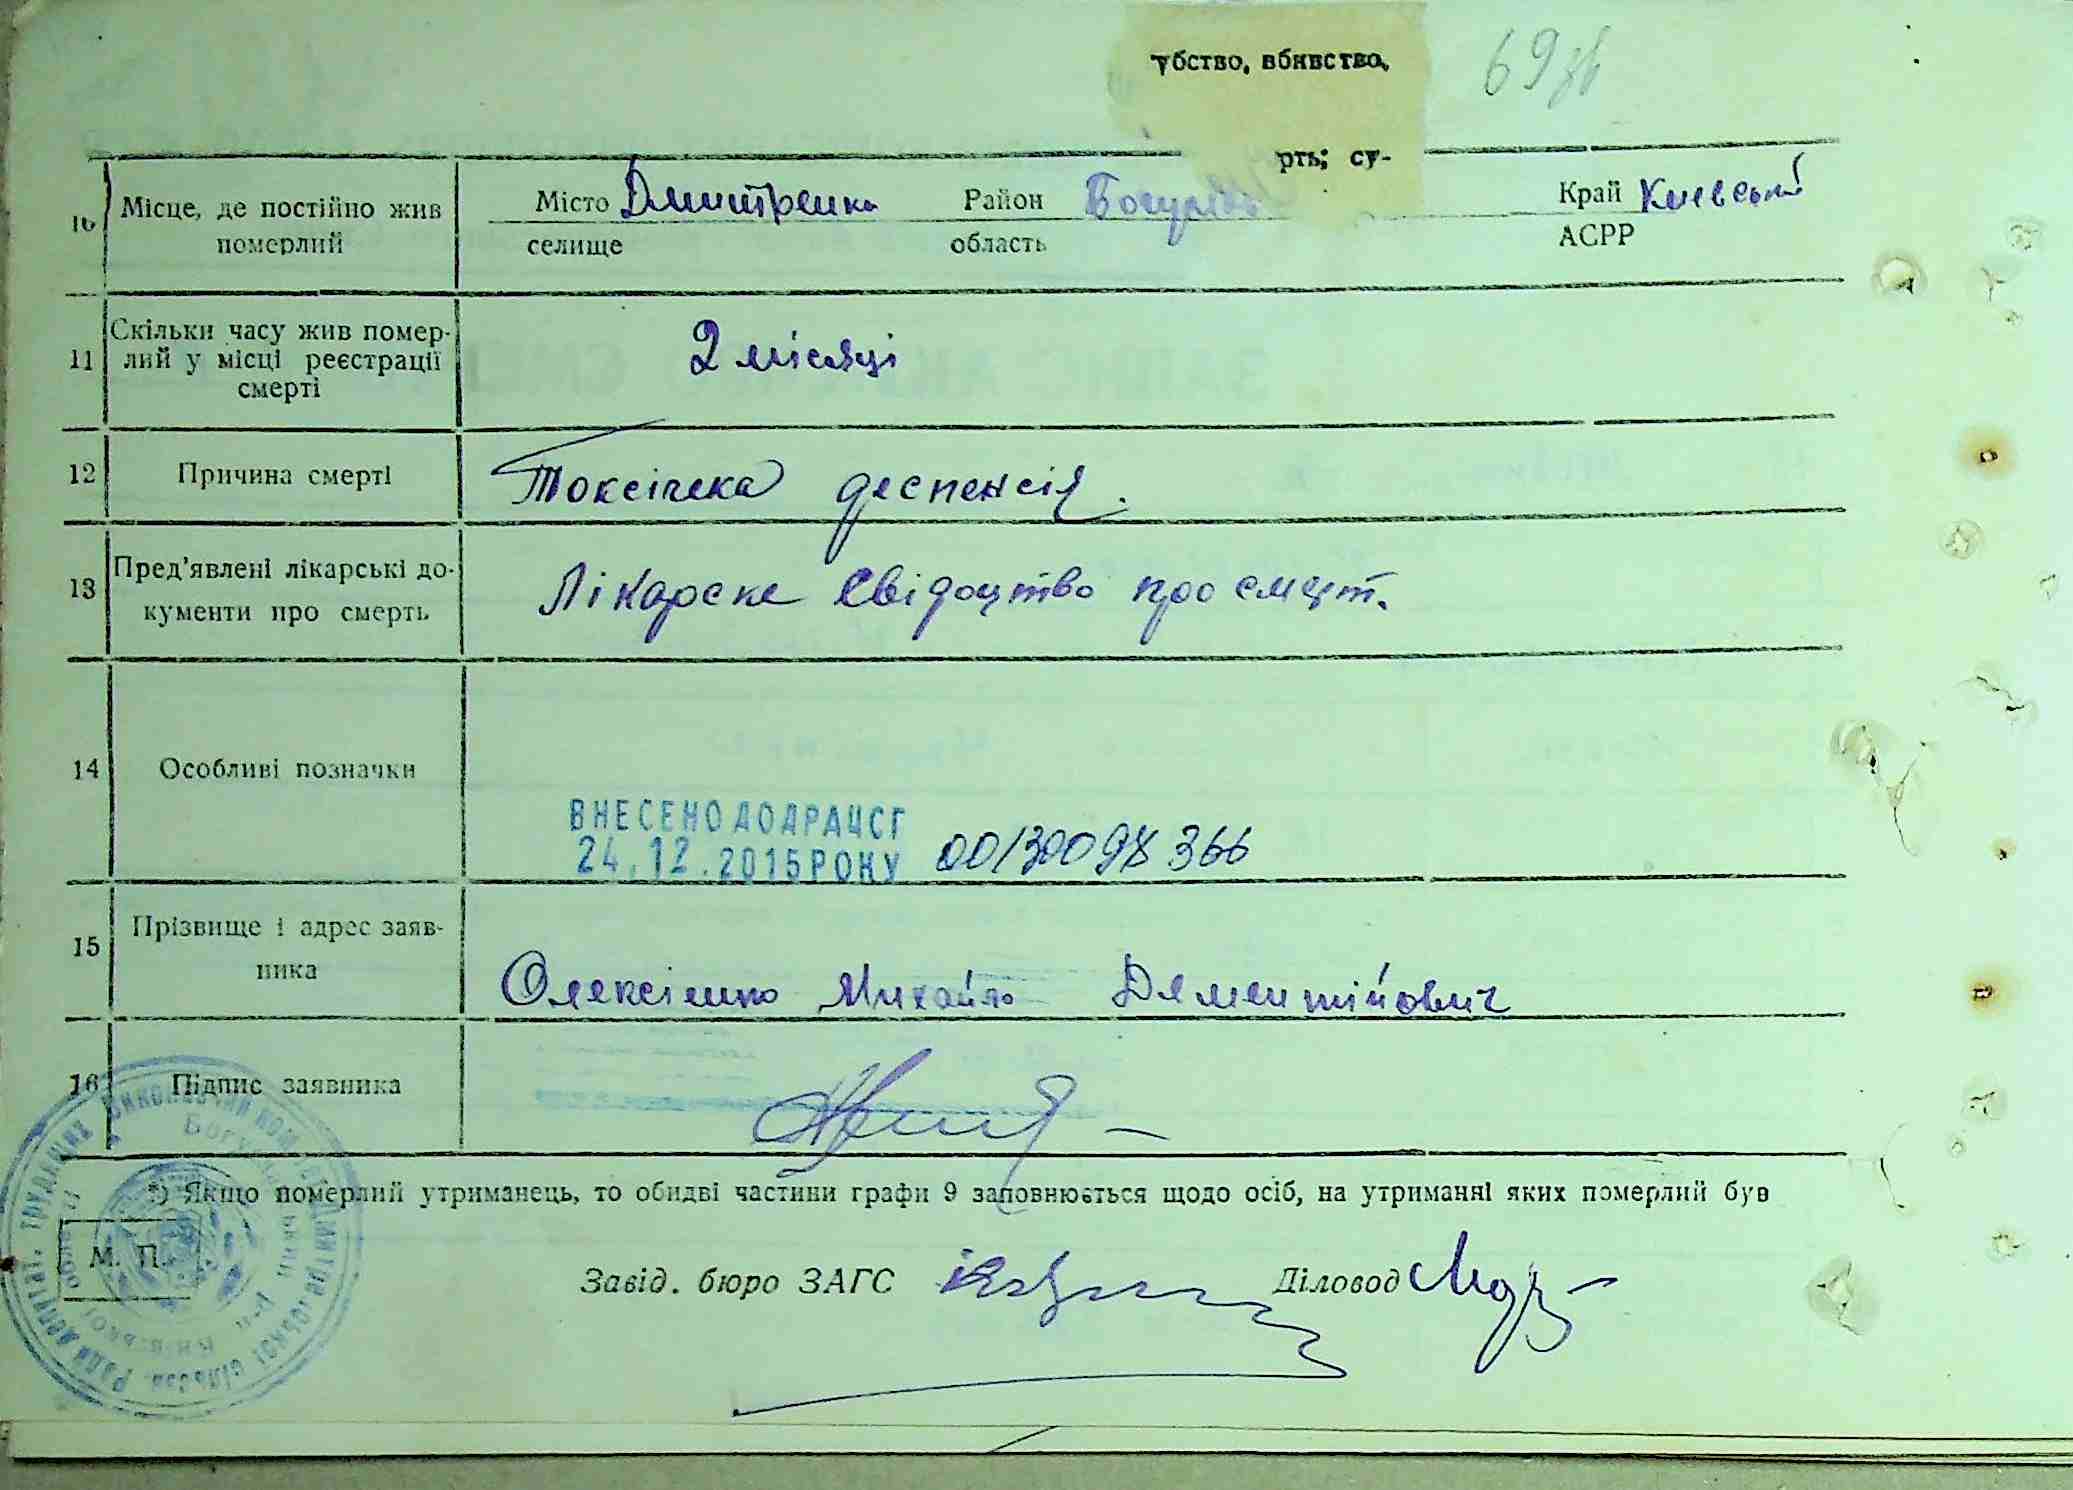 убство, вбивство,
69зв
рть; су-
10 Місце, де постійно жив померлий Місто Дмитренки Район Богуслав Край Киевський
селище область АСРР
11 Скільки часу жив помер-
лий у місці реєстрації
смерті
2 місяці
12 Причина смерті Токсічека деспенсія.
13 Пред'явлені лікарські до-
кументи про смерть
Лікарске свідоцтво про смерт.
14 Особливі позначки
ВНЕСЕНО ДО ДРАЦСГ
24.12.2015 РОКУ 00130098366
15 Прізвище і адрес заяв-
ника
Олексієнко Михайло Дементійович
16 Підпис заявника
*) Якщо померлий утриманець, то обидві частини графи 9 заповнюється щодо осіб, на утриманні яких померлий був
М. П.
Завід. бюро ЗАГС Діловод